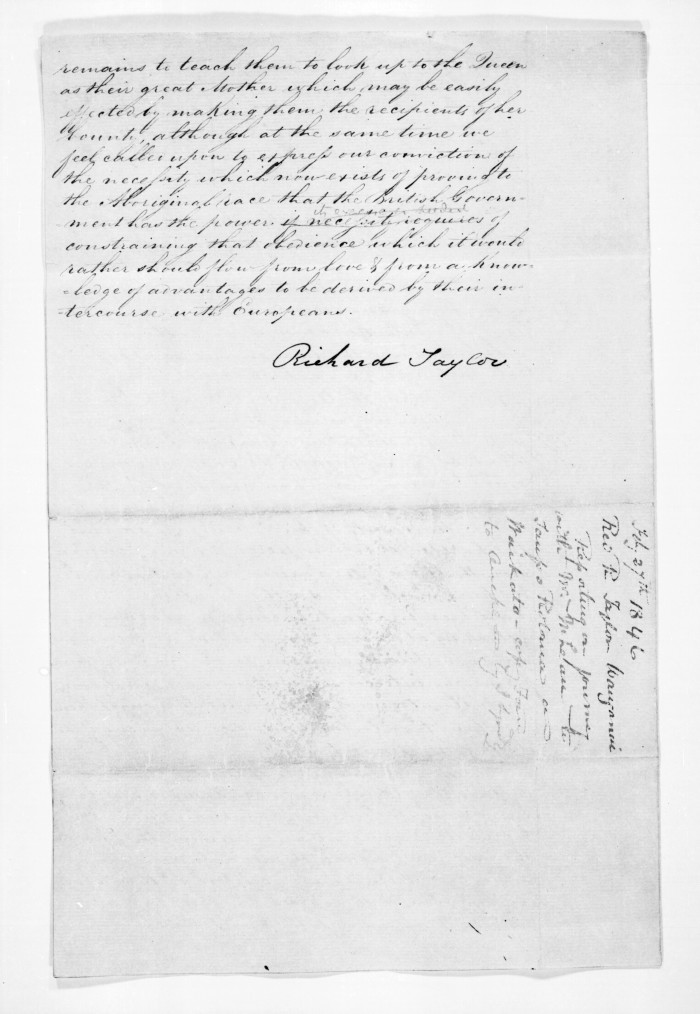 remains to teach them to look up to the Queen
as their great Mother which may be easily
effected by making them the recipients of her
bounty, although at the same time we
feel called upon to express our conviction of
the necessity which now exists of proving to
the Aboriginal race that the British Govern-
ment has the power if necessity requires of
constraining that obedience which it would
rather should flow from love & from a know-
-ledge of advantages to be derived by their in-
-tercourse with Europeans.
Richard Taylor
Feby 27th 184
Revd R Taylor Wanganui
Reporting on journey
with Mr McLean to
Taupo Rotorua
Waikato
to